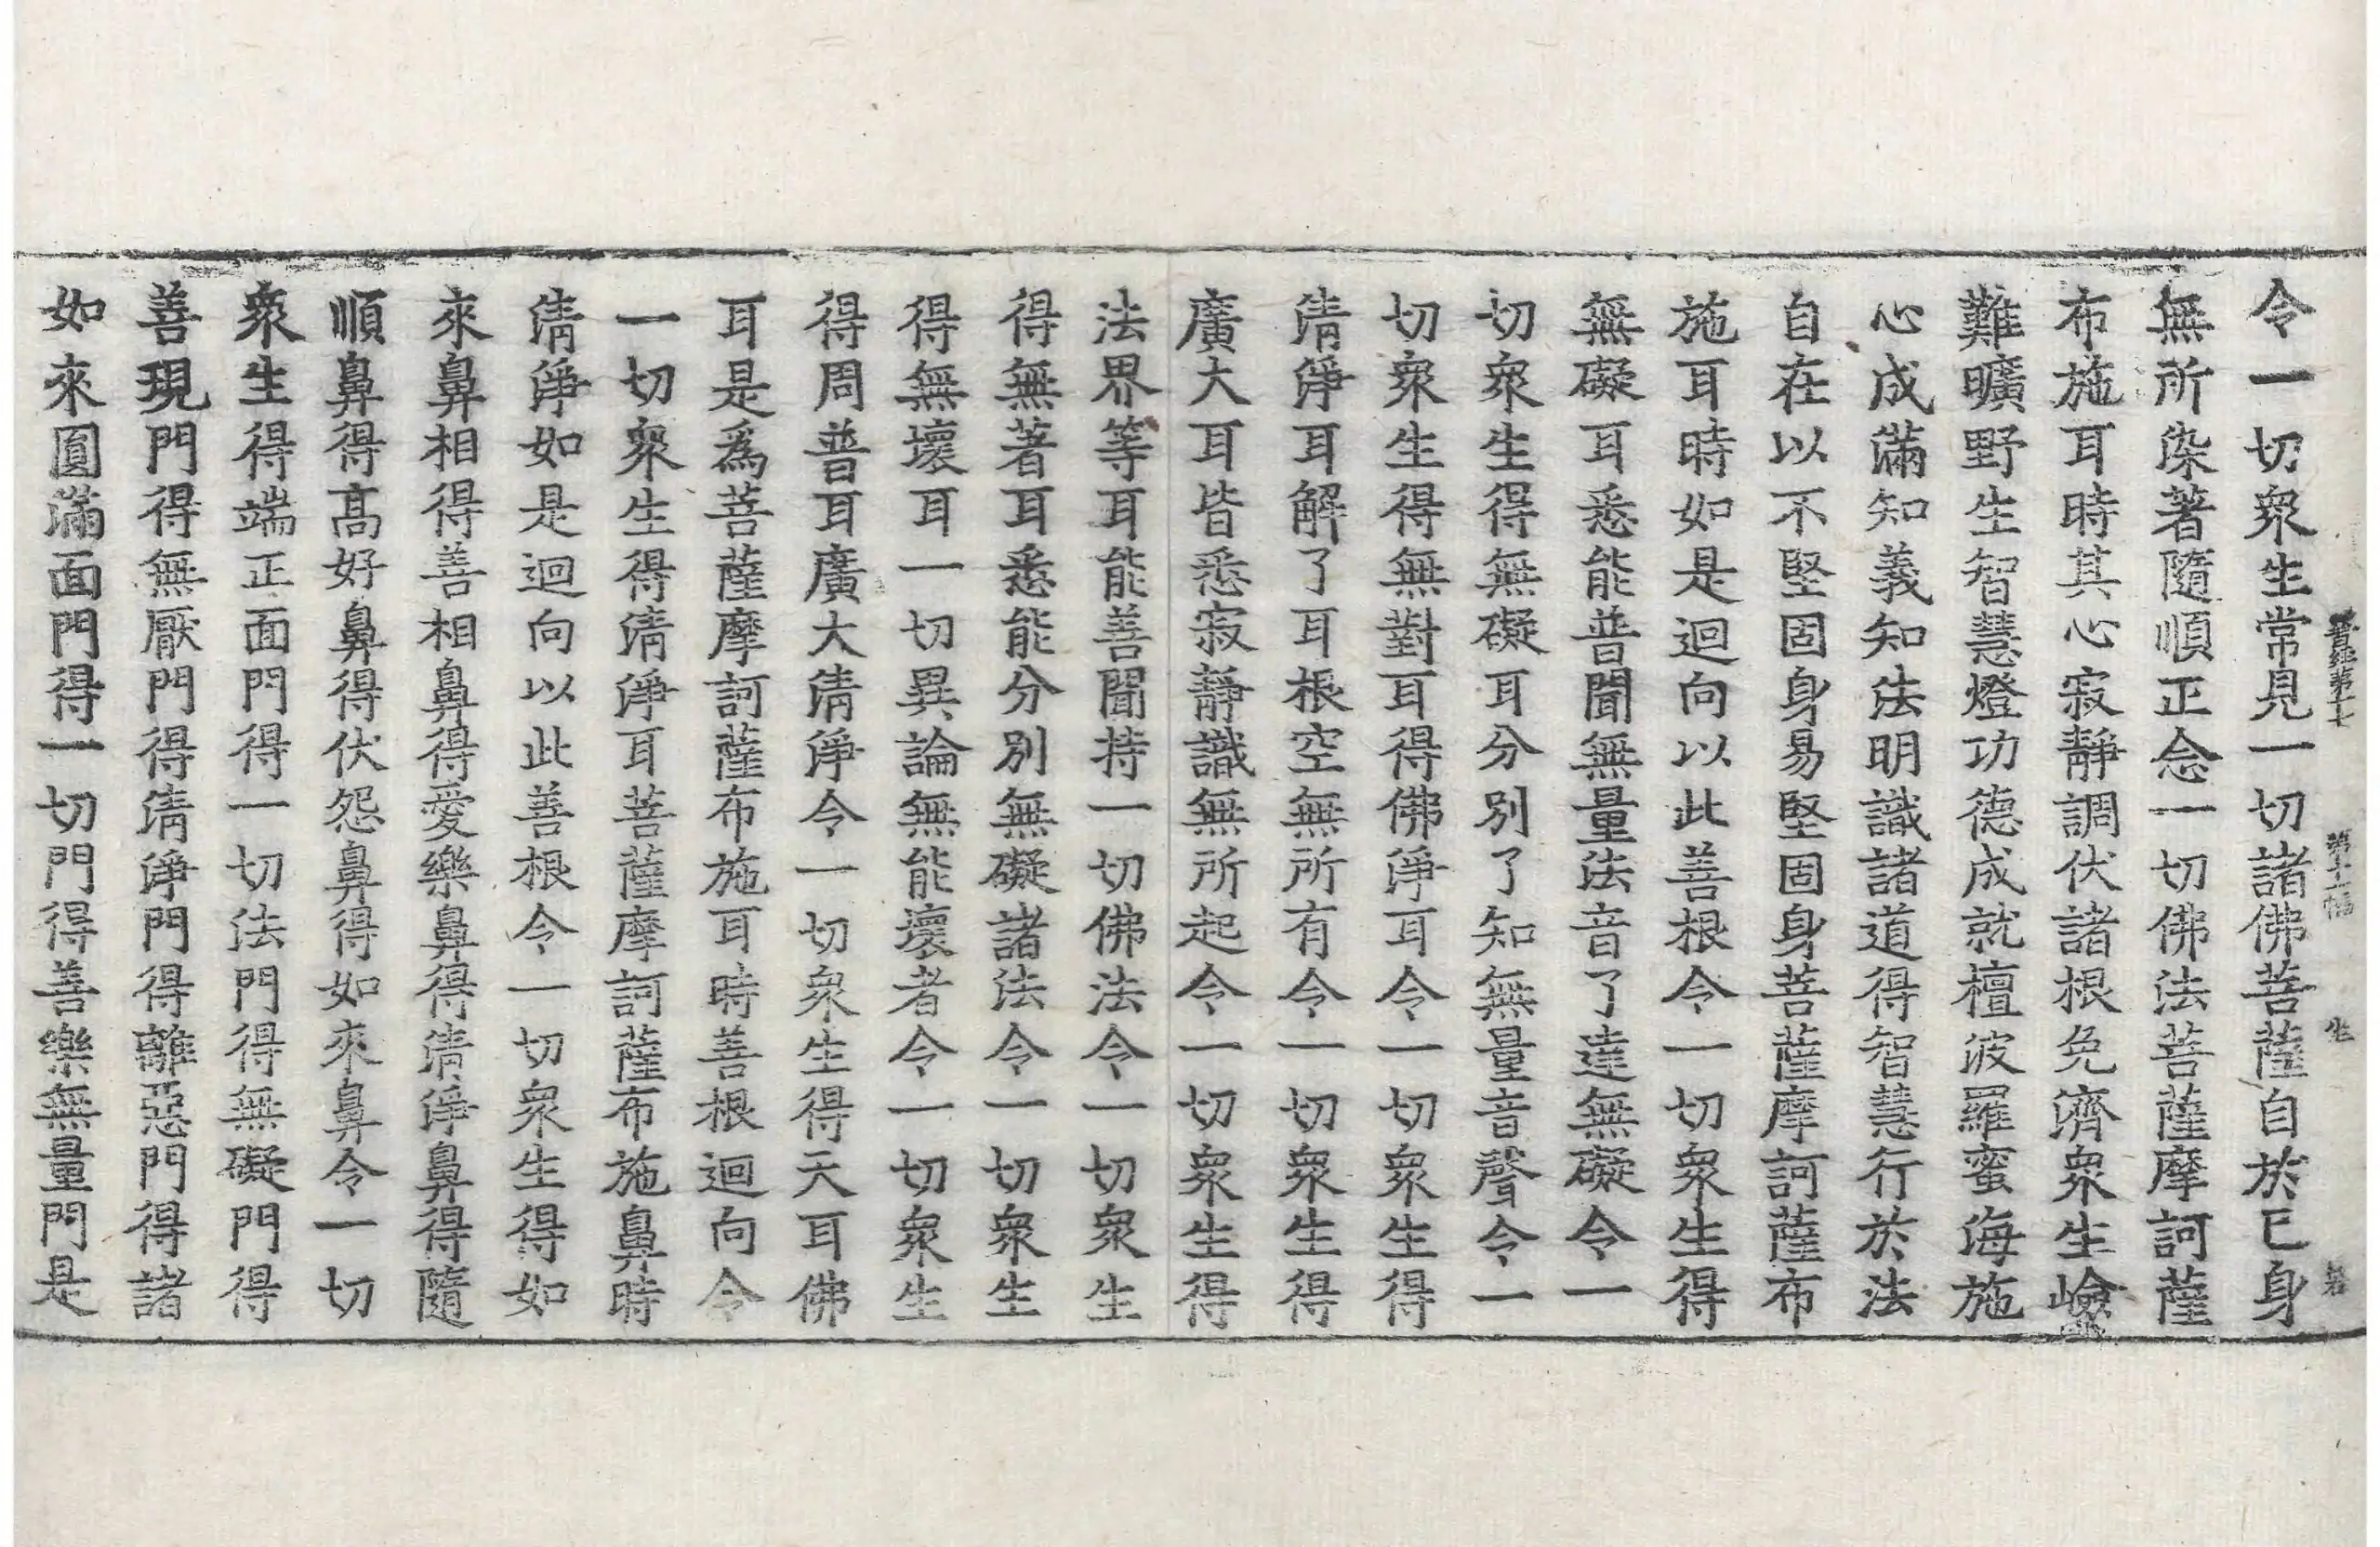 晋經第十七 第十二幅 生
令一切衆生常見一切諸佛菩薩自於已身
無所染著隨順正念一切佛法菩薩摩訶薩
布施耳時其心寂靜調伏諸根免濟衆生嶮
難曠野生智慧燈功德成就檀波羅蜜海施
心成滿知義知法明識諸道得智慧行於法
自在以不堅固身易堅固身菩薩摩訶薩布
施耳時如是迴向以此善根令一切衆生得
無礙耳悉能普聞無量法音了達無礙令一
切衆生得無礙耳分別了知無量音聲令一
切衆生得無對耳得佛淨耳令一切衆生得
清淨耳解了耳根空無所有令一切衆生得
廣大耳皆悉寂靜識無所起令一切衆生得
法界等耳能善聞持一切佛法令一切衆生
得無著耳悉能分別無礙諸法令一切衆生
得無壞耳一切異論無能壞者令一切衆生
得周普耳廣大清淨令一切衆生得天耳佛
耳是爲菩薩摩訶薩布施耳時善根迴向令
一切衆生得清淨耳菩薩摩訶薩布施鼻時
清淨如是迴向以此善根令一切衆生得如
來鼻相得善相鼻得愛樂鼻得清淨鼻得隨
順鼻得高好鼻得伏怨鼻得如來鼻令一切
衆生得端正面門得一切法門得無礙門得
善現門得無厭門得清淨門得離惡門得諸
如來圓滿面門得一切門得善樂無量門是